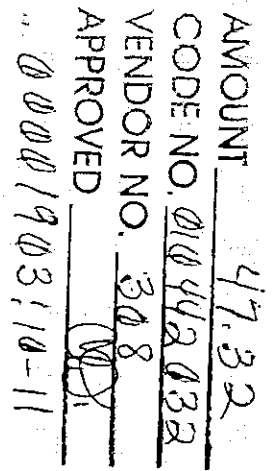 AMOUNT 47.32
CODE NO. 00442032
VENDOR NO. 308
APPROVED
00001903:10-11